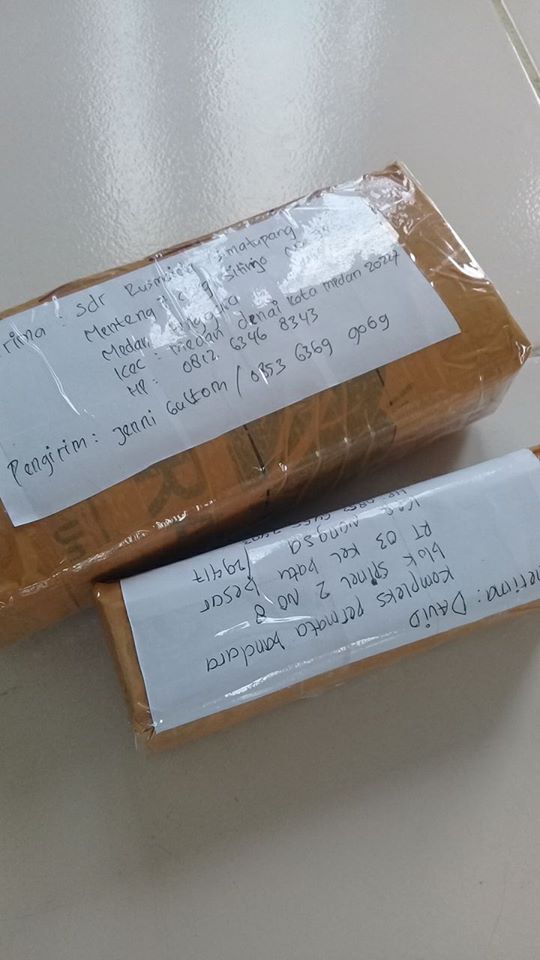 rima : sdr Rusmaida Simatupang
Menteng 7 gg Sitinjo No
Medan tenggara
Kec : medan denai kota medan 20227
HP : 0812 6346 8343
Pengirim : Jenni Gultom / 0853 6369 9069
nerima : DAVID
Kompleks permata bandara
blok spinel 2 NO 8
RT 03 kel batu besar
Kec Nongsa /29417